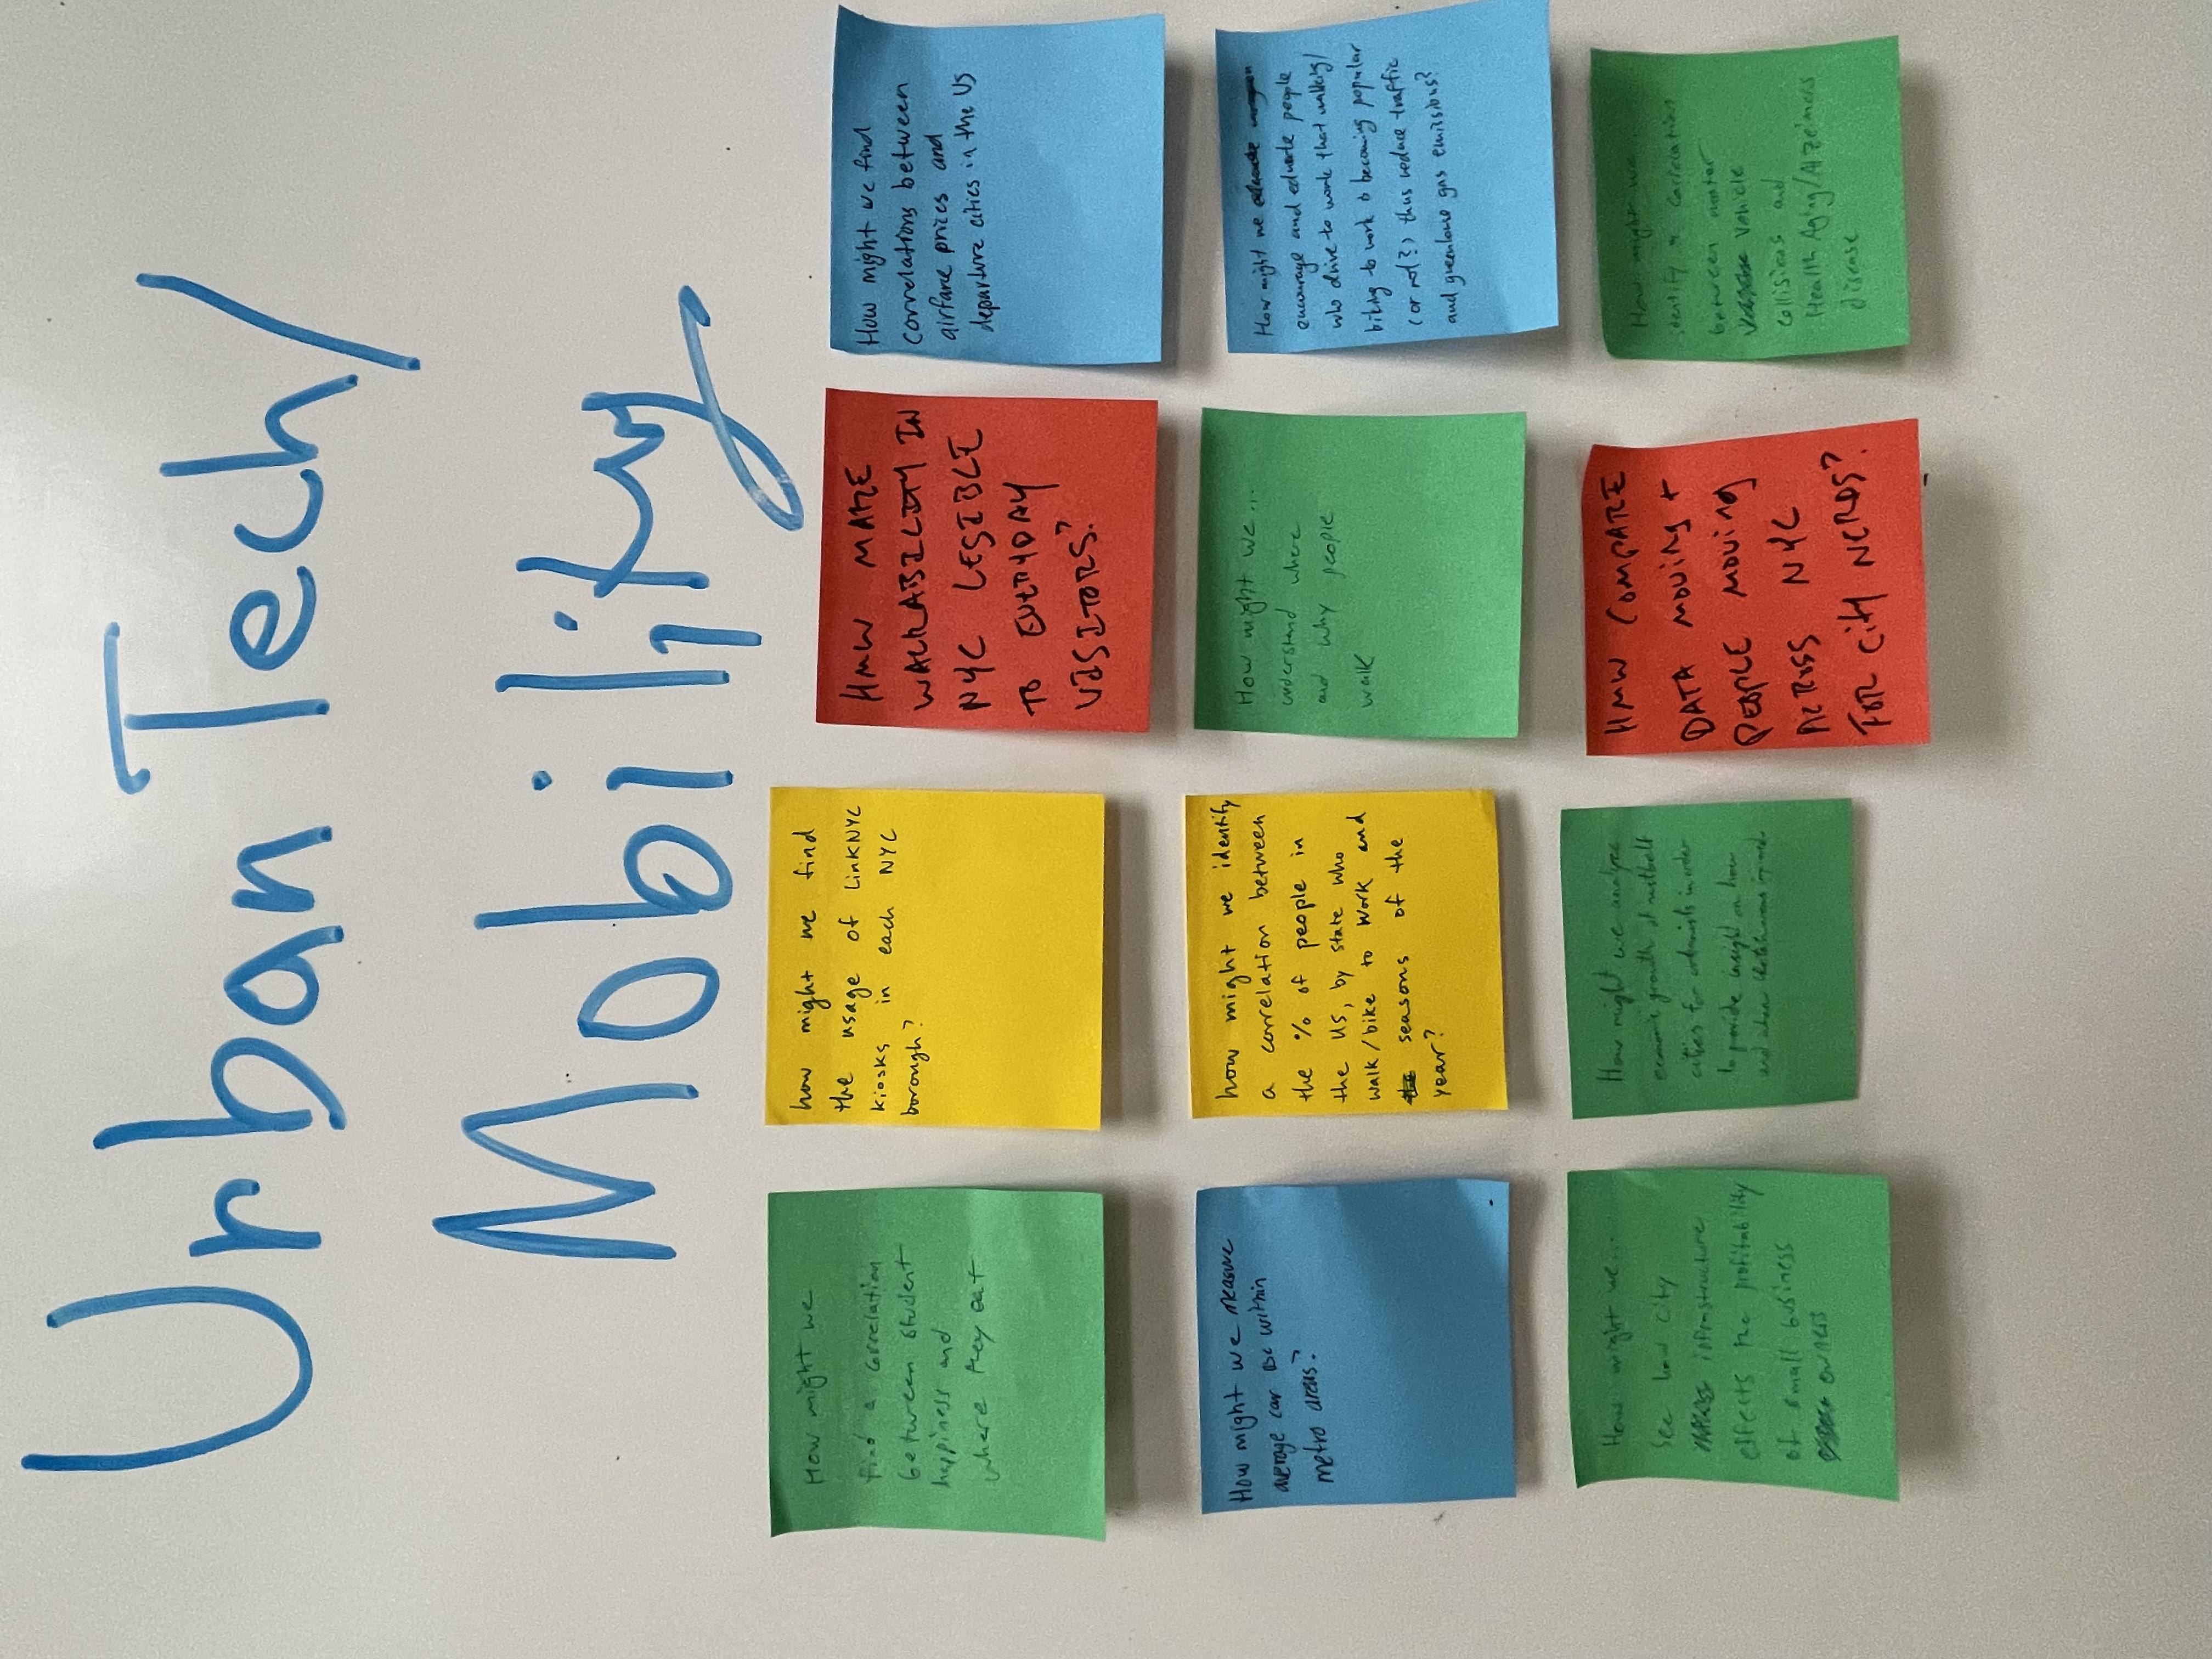 Urban Tech/
Mobility
How might we
find a correlation
between student
happiness and
where they eat
how might we find
the usage of LinkNYC
kiosks in each NYC
borough?
HMW MAKE
WALKABILITY IN
NYC LEGIBLE
TO EVERYDAY
VISITORS?
How might we find
correlations between
airfare prices and
departure cities in the US
How might we measure
average car use within
metro areas?
how might we identify
a correlation between
the % of people in
the US, by state who
walk/bike to work and
seasons of the
year?
How might we...
understand where
and why people
walk
How might we
encourage and educate people
who drive to work that walking/
biking to work is becoming popular
(or not?) thus reduce traffic
and greenhouse gas emissions?
How might we...
see how city
infrastructure
effects the profitability
of small business
owners
How might we analyze
economic growth of rustbelt
cities for urbanists in order
to provide insight on how
and when
HMW COMPARE
DATA MOVING +
PEOPLE MOVING
ACROSS NYC
FOR CITY NERDS?
How might we
identify a correlation
between motor
vehicle
collisions and
Health Aging/Alzeimers
disease